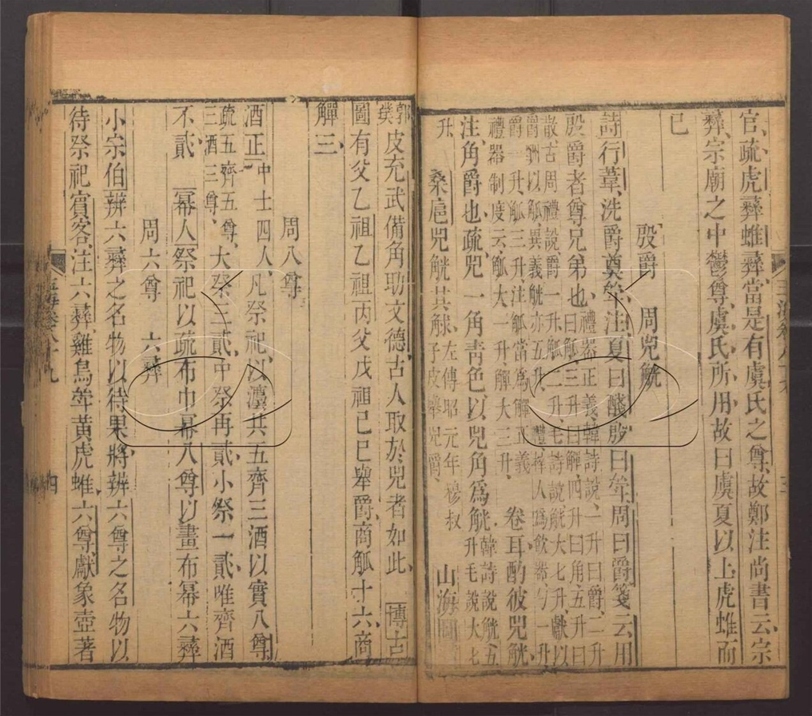 官疏虎彝蜼彝當是有虞氏之尊故鄭注尚書云宗
彝宗廟之中鬱尊虞氏所用故曰虞夏以上虎蜼而
已
殷爵 周兕觥
詩行葦洗爵奠斝注夏曰醆殷曰斝周曰爵箋云用
殷爵者尊兄弟也 禮器正義韓詩說一升曰爵二升
曰觚三升曰觶四升曰角五升曰
散古周禮說爵一升觚二升毛詩說觥大七升獻以
爵酬以觚異義觥亦五升
爵一升觚三升注觚當為觶正義
禮器制度云觚大一升觶三升 卷耳酌彼兕觥
注角爵也疏兕一角青色以兕角爲觥 韓詩說觥五
升毛說大七
升 桑扈兕觥其觩 左傳昭元年穆叔
子皮舉兕爵 山海圖
郭璞
皮充武備角助文德古人取於兕者如此 博古
圖有父乙祖乙祖丙父戊祖己巳舉爵商觚十六商
觶三
周八尊
酒正 中士四人 凡祭祀以灋共五齊三酒以實八尊
疏五齊五尊
三酒三尊 大祭三貳中祭再貳小祭一貳唯齊酒
不貳 冪人祭祀以疏布巾冪八尊以畫布冪六彝
周六尊 六彝
小宗伯辨六彝之名物以待果將辨六尊之名物以
待祭祀賓客注六彝雞鳥斝黃虎蜼六尊獻象壺著
四